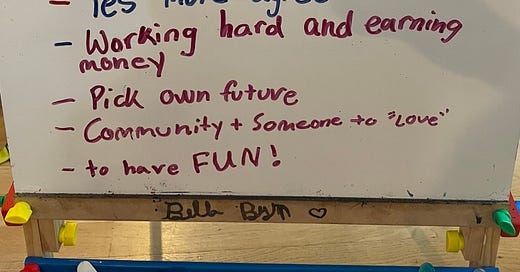 - Yes more agree
- Working hard and earning
money
- Pick own future
- Community + Someone to "Love"
- to have FUN!
Bella